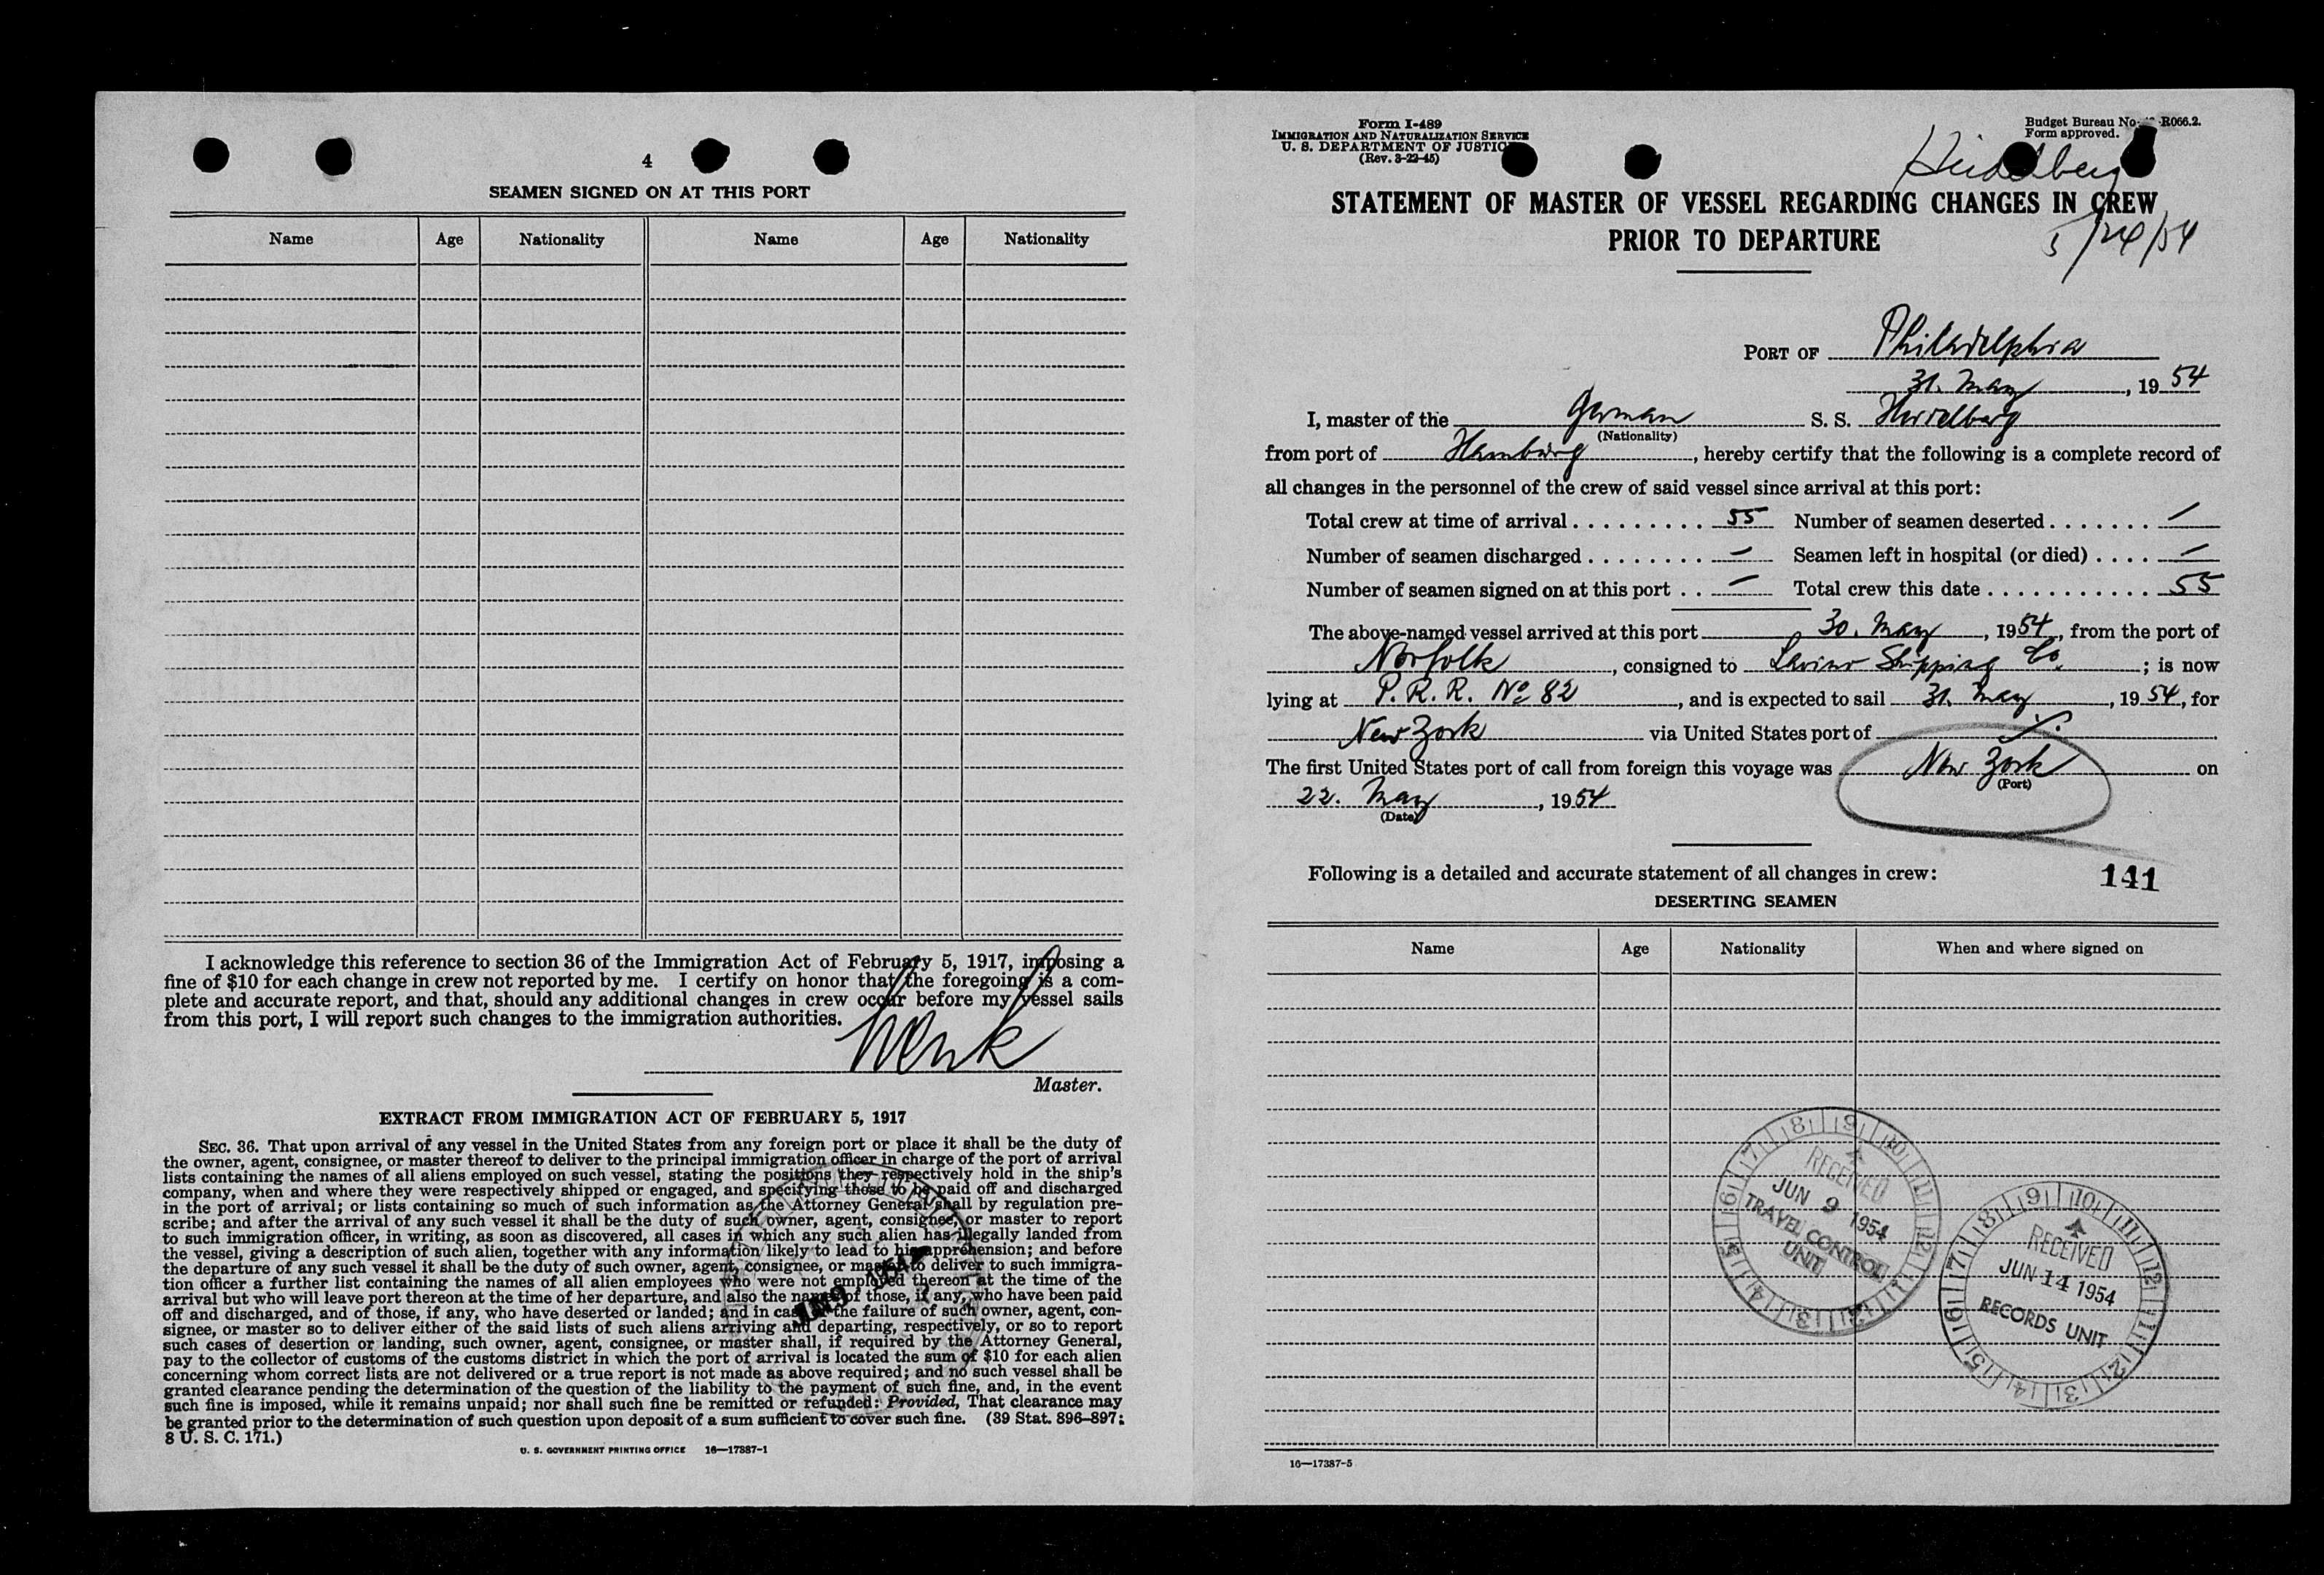 4
SEAMEN SIGNED ON AT THIS PORT
Name Age Nationality Name Age Nationality
I acknowledge this reference to section 36 of the Immigration Act of February 5, 1917, imposing a
fine of $10 for each change in crew not reported by me. I certify on honor that the foregoing is a com-
plete and accurate report, and that, should any additional changes in crew occur before my vessel sails
from this port, I will report such changes to the immigration authorities.
Master.
EXTRACT FROM IMMIGRATION ACT OF FEBRUARY 5, 1917
SEC. 36. That upon arrival of any vessel in the United States from any foreign port or place it shall be the duty of
the owner, agent, consignee, or master thereof to deliver to the principal immigration officer in charge of the port of arrival
lists containing the names of all aliens employed on such vessel, stating the positions they respectively hold in the ship's
company, when and where they were respectively shipped or engaged, and specifying those to be paid off and discharged
in the port of arrival; or lists containing so much of such information as the Attorney General shall by regulation pre-
scribe; and after the arrival of any such vessel it shall be the duty of such owner, agent, consignee, or master to report
to such immigration officer, in writing, as soon as discovered, all cases in which any such alien has illegally landed from
the vessel, giving a description of such alien, together with any information likely to lead to his apprehension; and before
the departure of any such vessel it shall be the duty of such owner, agent, consignee, or master to deliver to such immigra-
tion officer a further list containing the names of all alien employees who were not employed thereon at the time of the
arrival but who will leave port thereon at the time of her departure, and also the names of those, if any, who have been paid
off and discharged, and of those, if any, who have deserted or landed; and in case of the failure of such owner, agent, con-
signee, or master so to deliver either of the said lists of such aliens arriving and departing, respectively, or so to report
such cases of desertion or landing, such owner, agent, consignee, or master shall, if required by the Attorney General,
pay to the collector of customs of the customs district in which the port of arrival is located the sum of $10 for each alien
concerning whom correct lists are not delivered or a true report is not made as above required; and no such vessel shall be
granted clearance pending the determination of the question of the liability to the payment of such fine, and, in the event
such fine is imposed, while it remains unpaid; nor shall such fine be remitted or refunded: Provided, That clearance may
be granted prior to the determination of such question upon deposit of a sum sufficient to cover such fine. (39 Stat. 896–897;
8 U. S. C. 171.)
U. S. GOVERNMENT PRINTING OFFICE 16—17387-1
Form I-489
IMMIGRATION AND NATURALIZATION SERVICE
U. S. DEPARTMENT OF JUSTICE
(Rev. 3-22-45)
Budget Bureau No. R066.2.
Form approved.
Heidelberg
STATEMENT OF MASTER OF VESSEL REGARDING CHANGES IN CREW
PRIOR TO DEPARTURE
5/24/54
PORT OF Philadelphia
31. May, 19 54
I, master of the German S. S. Heidelberg
(Nationality)
from port of Hamburg, hereby certify that the following is a complete record of
all changes in the personnel of the crew of said vessel since arrival at this port:
Total crew at time of arrival 55 Number of seamen deserted —
Number of seamen discharged — Seamen left in hospital (or died) —
Number of seamen signed on at this port — Total crew this date 55
The above-named vessel arrived at this port 30. May, 1954, from the port of
Norfolk, consigned to Lavino Shipping Co.; is now
lying at P.R.R. No 82, and is expected to sail 31. May, 19 54, for
New York via United States port of ./.
The first United States port of call from foreign this voyage was New York on
(Port)
22. May, 1954
(Date)
Following is a detailed and accurate statement of all changes in crew:
141
DESERTING SEAMEN
Name Age Nationality When and where signed on
RECEIVED
JUN 9 1954
TRAVEL CONTROL
UNIT
RECEIVED
JUN 14 1954
RECORDS UNIT
16—17387-5